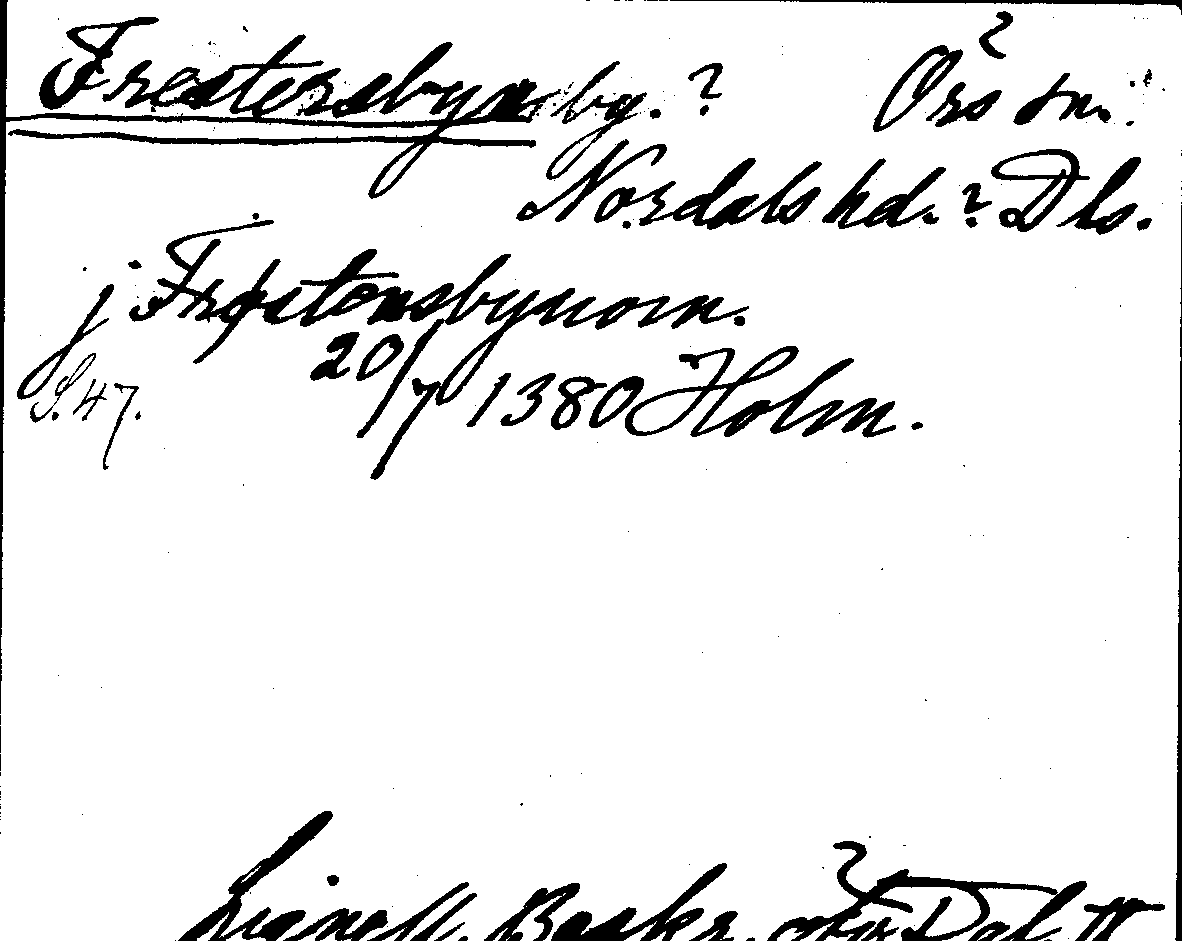 Frestersbyn by. ? Örs sn. ?
Nordals hd. ? Dls.
j Frøstensbynom.
S. 47. 20/7 1380 Holm.
Lignell, Beskr. öfv. Dal II